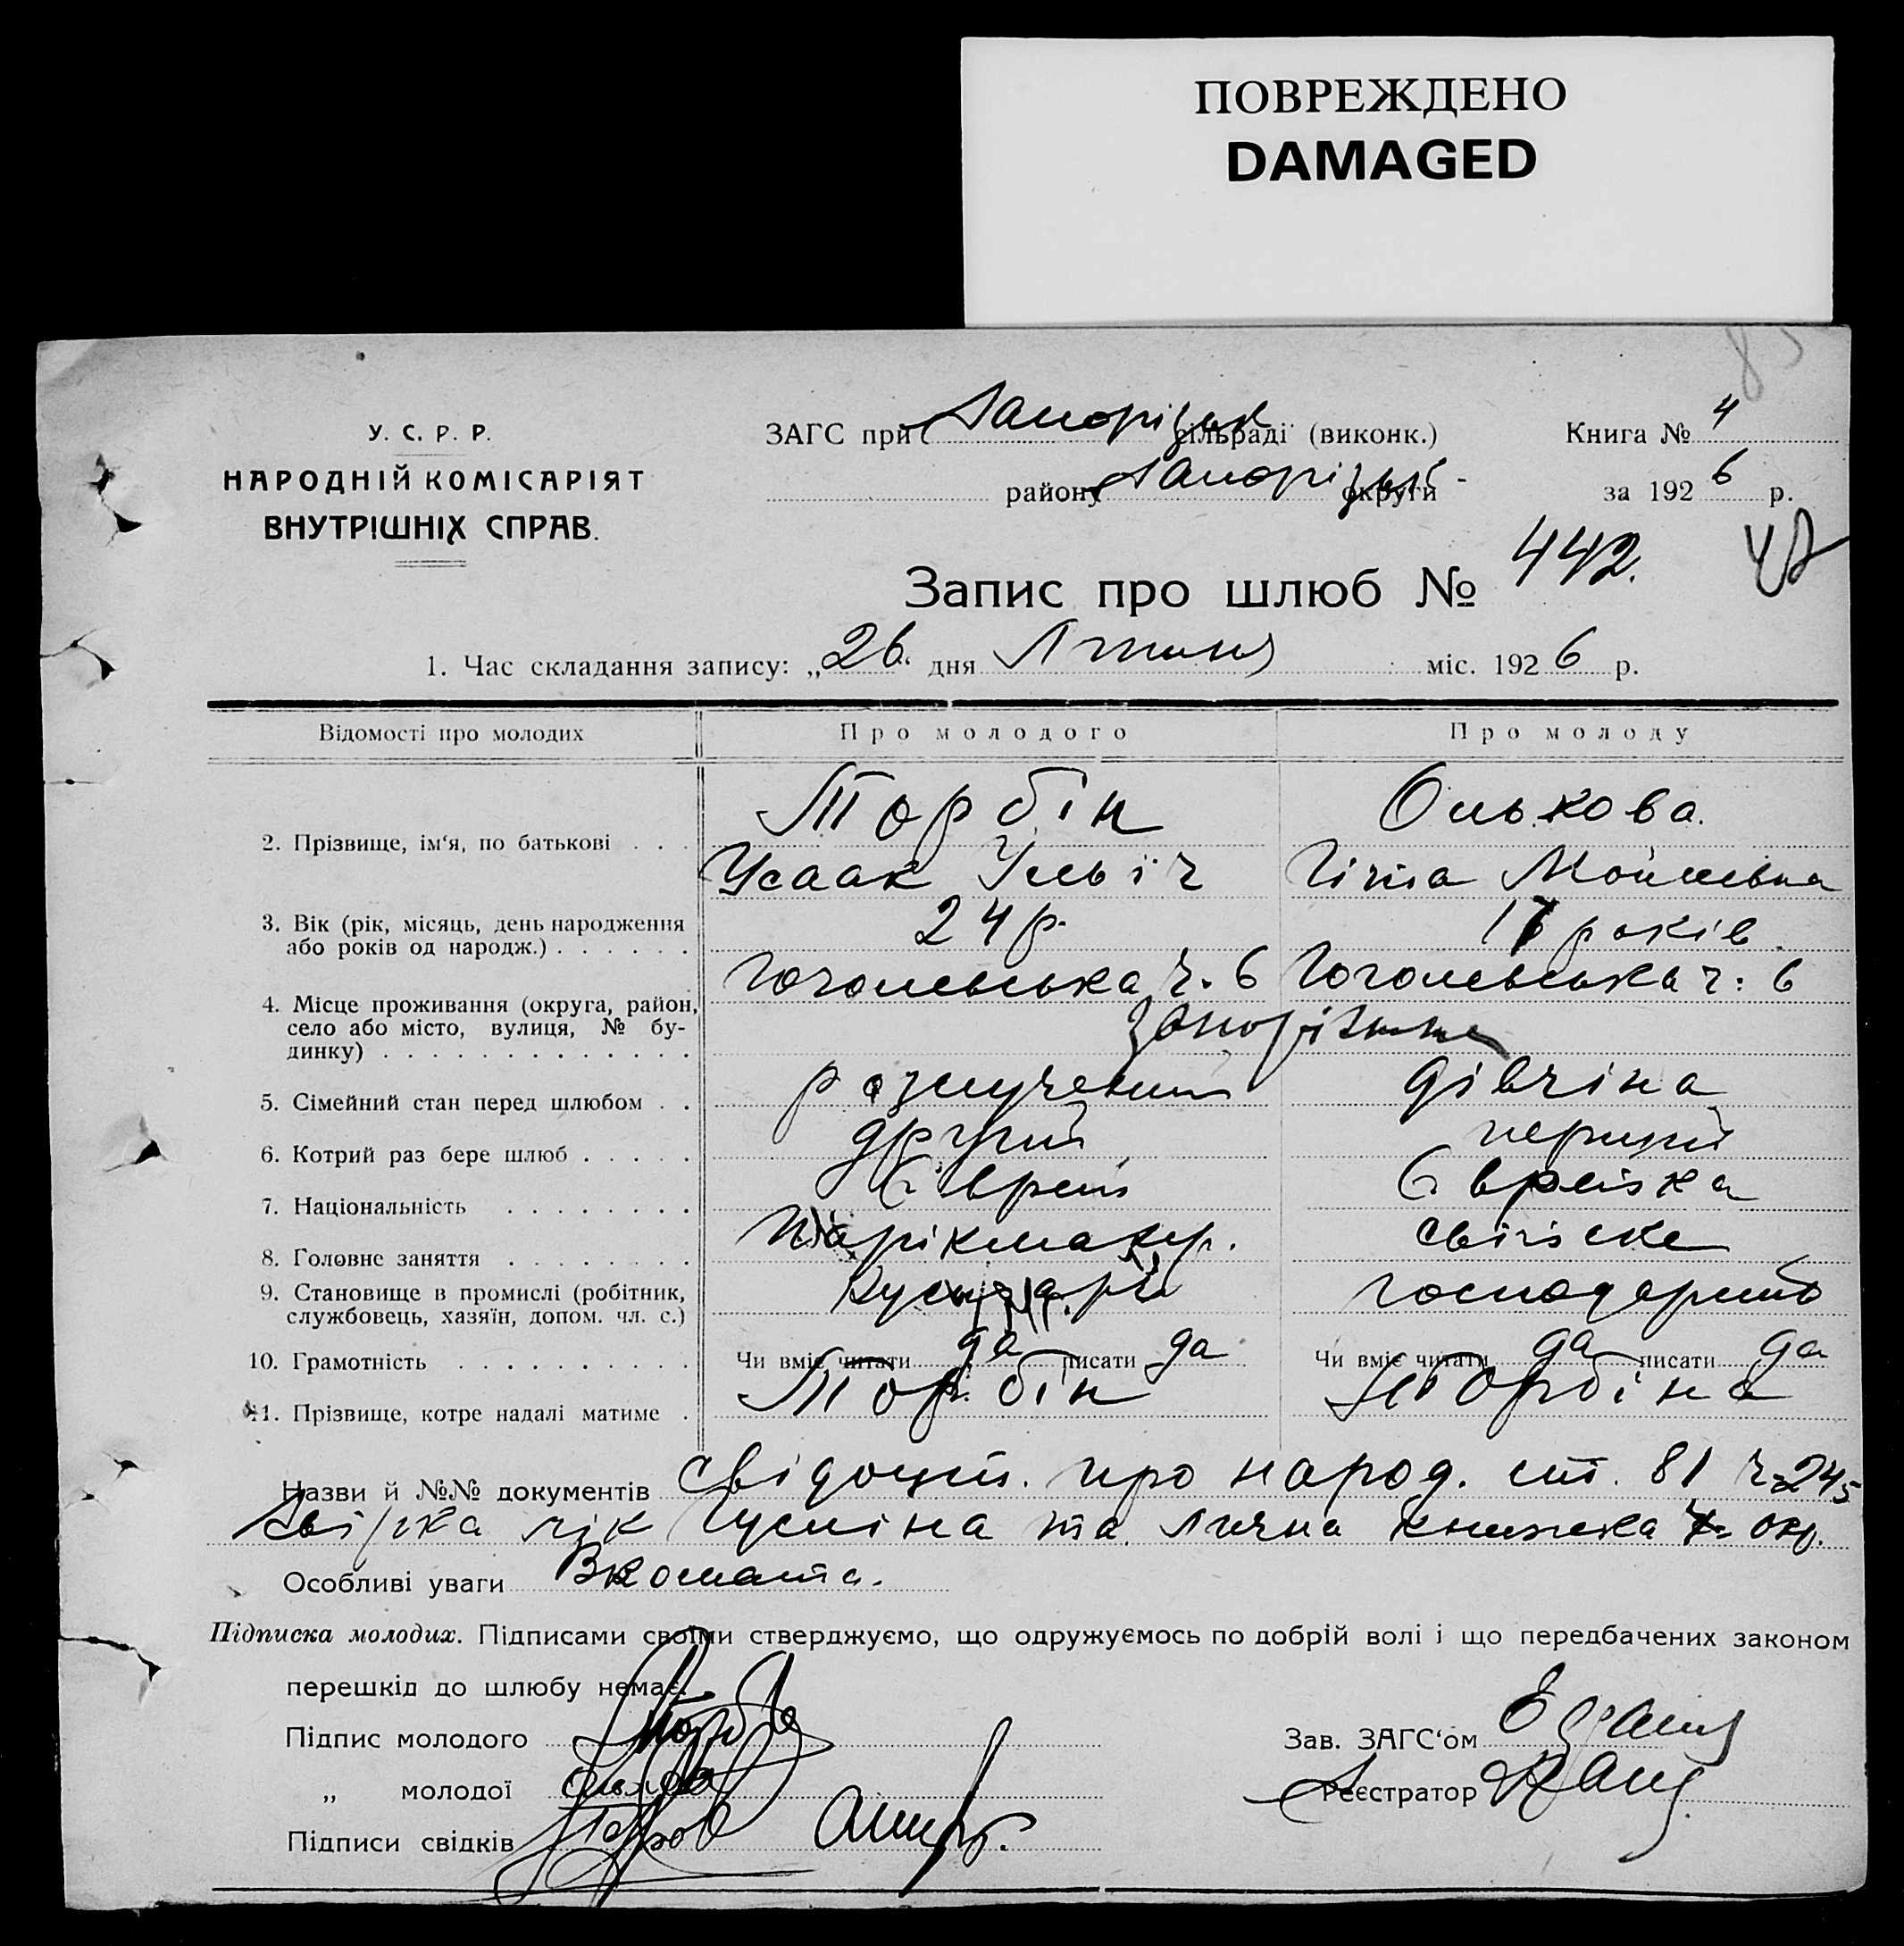 ПОВРЕЖДЕНО
DAMAGED
У. С. Р. Р.
НАРОДНІЙ КОМІСАРІЯТ
ВНУТРІШНІХ СПРАВ.
ЗАГС при Запорізьк сільраді (виконк.)
Книга № 4
району Запорізьк округи
за 1926 р.
Запис про шлюб № 442.
1. Час складання запису: „26. дня Липня міс. 1926 р.
Відомості про молодих
Про молодого
Про молоду
2. Прізвище, ім‘я, по батькові . . .
Торбін
Усаак Ільїч
Олькова.
Гітта Мойшевна
3. Вік (рік, місяць, день народження
або років од народж.) . . . . . .
24 р.
17 років.
4. Місце проживання (округа, район,
село або місто, вулиця, № бу-
динку) . . . . . . . . . . . . .
Гоголевська ч. 6
Гоголевська ч. 6
Запоріжжа
5. Сімейний стан перед шлюбом . .
розлучений
дівчіна
6. Котрий раз бере шлюб . . . . .
другий
перший
7. Національність . . . . . . . .
Єврей
Єврейка
8. Головне заняття . . . . . . .
Парікмахер.
свійске
9. Становище в промислі (робітник,
службовець, хазяїн, допом. чл. с.)
Кустарь
господарство
10. Грамотність . . . . . . . . . .
Чи вміє читати да писати да
Чи вміє читати да писати да
11. Прізвище, котре надалі матиме .
Торбін
Торбіна
Назви й №№ документів свідоцт. про народ. ст. 81 ч. 245
та Лична книжка окр.
Особливі уваги Вкомата.
Підписка молодих. Підписами своїми стверджуємо, що одружуємось по добрій волі і що передбачених законом
перешкід до шлюбу немає.
Підпис молодого
Зав. ЗАГС‘ом
„ молодої
Реєстратор
Підписи свідків